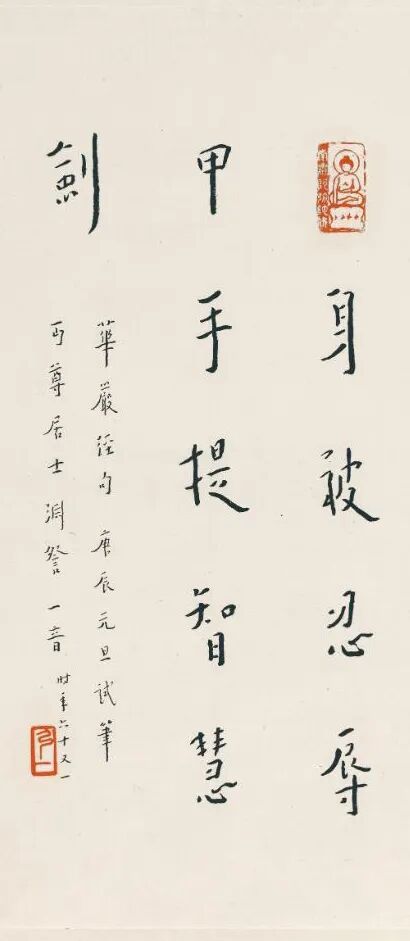 身被忍辱
甲手提智慧
劍
華嚴經句 庚辰元旦試筆
丏尊居士渊詧 一音 时年六十又一
弘一